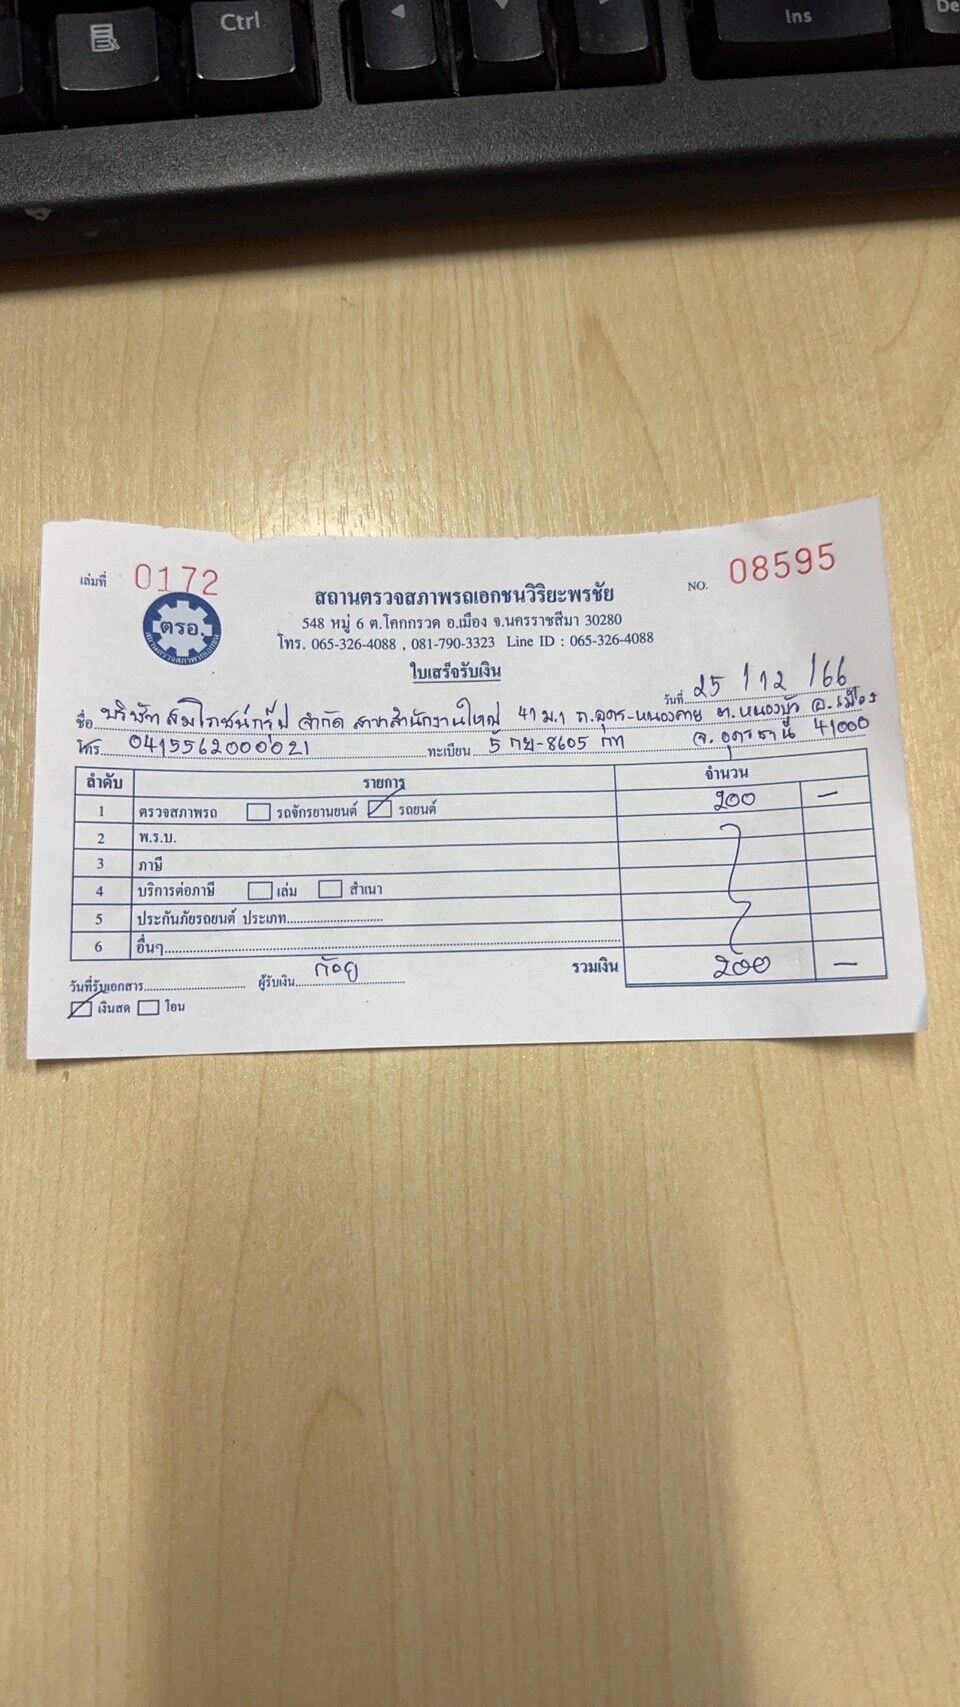 Ctrl
Ins
De
เล่มที่ 0172
NO. 08595
ตรอ.
สถานตรวจสภาพรถเอกชน
สถานตรวจสภาพรถเอกชนวิริยะพรชัย
548 หมู่ 6 ต.โคกกรวด อ.เมือง จ.นครราชสีมา 30280
โทร. 065-326-4088 , 081-790-3323 Line ID : 065-326-4088
ใบเสร็จรับเงิน
วันที่ 25 / 12 / 66
ชื่อ บริษัท สมโภชน์กรุ๊ป จำกัด สาขาสำนักงานใหญ่ 41 ม.1 ถ.อุดร-หนองคาย ต.หนองบัว อ.เมือง
โทร. 0415562000021 ทะเบียน 5 กย-8605 กท จ.อุดรธานี 41000
ลำดับ รายการ จำนวน
1 ตรวจสภาพรถ รถจักรยานยนต์ รถยนต์ 200 -
2 พ.ร.บ.
3 ภาษี
4 บริการต่อภาษี เล่ม สำเนา
5 ประกันภัยรถยนต์ ประเภท
6 อื่นๆ
รวมเงิน 200 -
วันที่รับเอกสาร ผู้รับเงิน ก้อย
เงินสด โอน